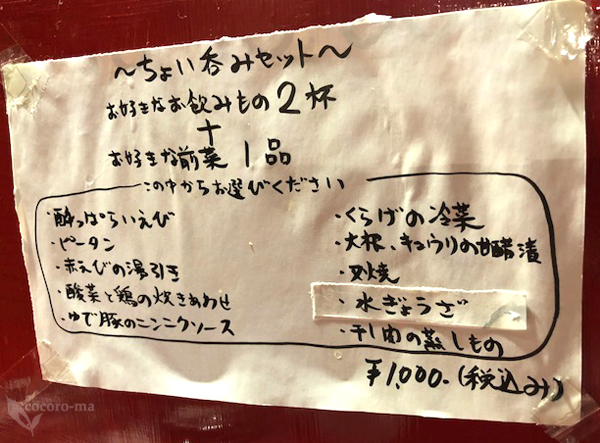 ～ちょい呑みセット～
お好きなお飲みもの2杯
＋
お好きな前菜1品
この中からお選びください
・酔っぱらいえび
・ピータン
・赤えびの湯引き
・酸菜と鶏の炊きあわせ
・ゆで豚のニンニクソース
・くらげの冷菜
・大根、キュウリの甘酢漬
・叉焼
・水ぎょうざ
・干し肉の蒸しもの
¥1,000.(税込み)
cocoro-ma